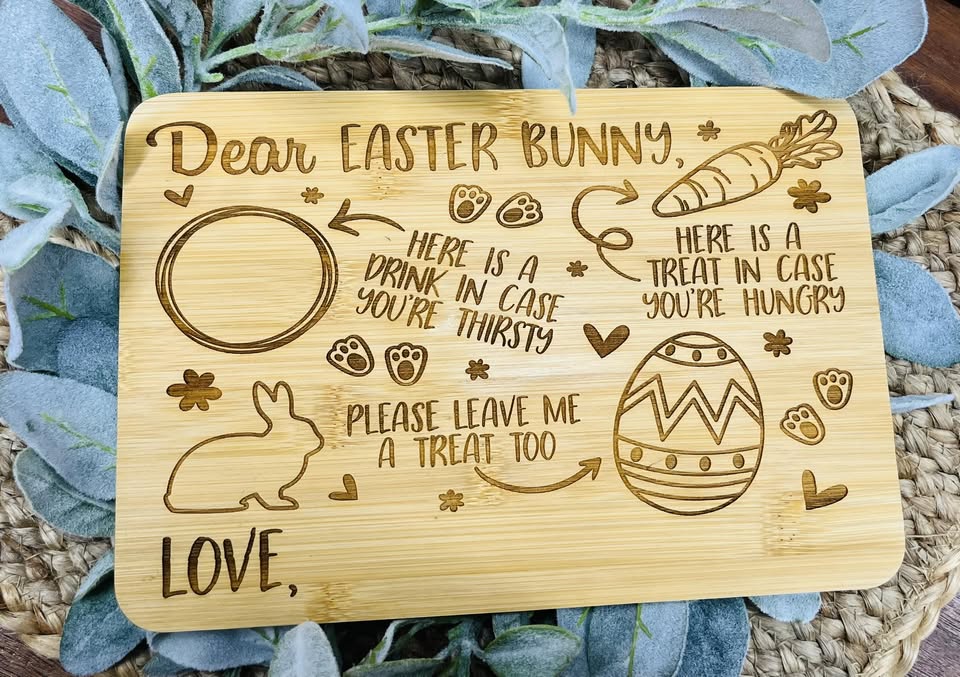 Dear EASTER BUNNY,
HERE IS A
DRINK IN CASE
YOU'RE THIRSTY
HERE IS A
TREAT IN CASE
YOU'RE HUNGRY
PLEASE LEAVE ME
A TREAT TOO
LOVE,